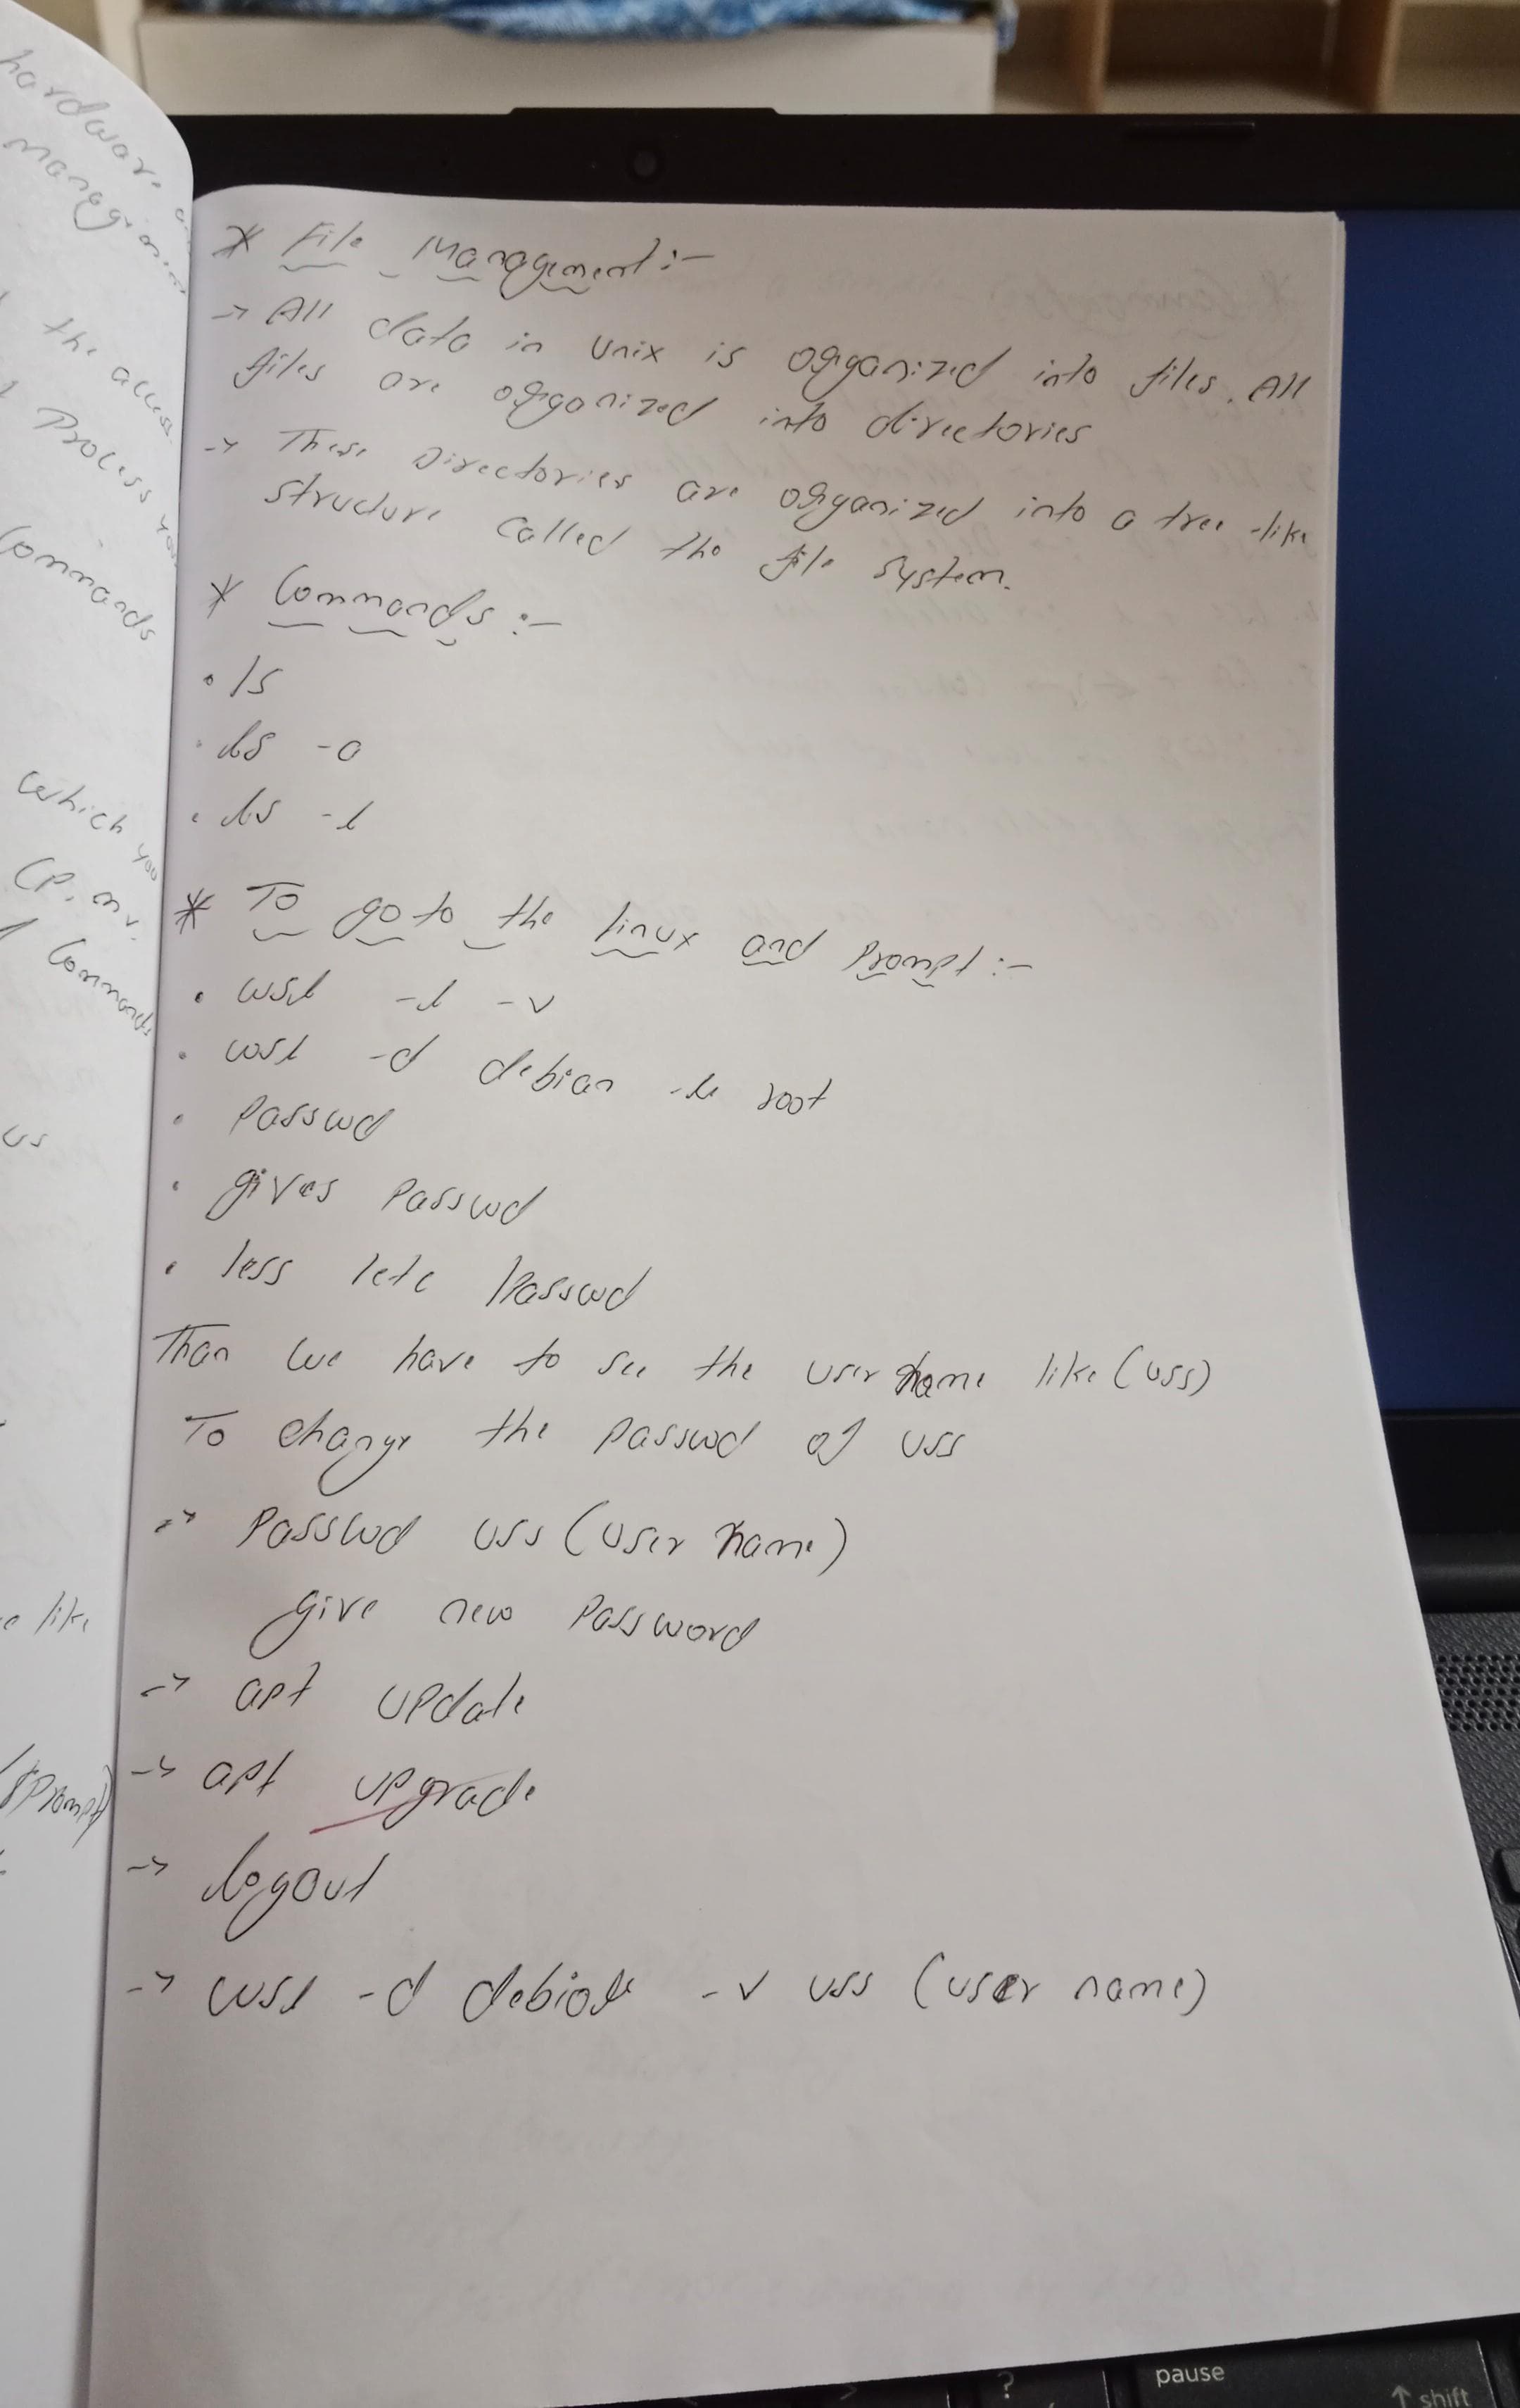 hardware
Managing
the access
Process you
Commands
which you
CP, mv.
Commands
us
like
Prompt)
* File Management:-
-> All data in Unix is organized into files. All
files are organized into directories
-> These Directories are organized into a tree -like
structure called the file system.
* Commands :-
• ls
• ls -a
• ls -l
* To go to the linux and Prompt :-
• wsl -l -v
• wsl -d debian -u root
• Passwd
• gives Passwd
• less /etc /Passwd
Than we have to see the user name like (uss)
To change the Passwd of uss
-> Passwd uss (user name)
give new Password
-> apt update
-> apt upgrade
-> logout
-> wsl -d debian -v uss (user name)
?
pause
↑ shift